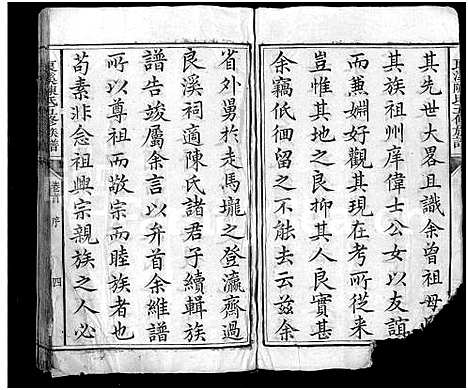 其先世大畧且識余曾祖母
其族祖州庠偉士公女以友誼
而蒹婣好觀其現在考所從来
豈惟其地之良抑其人良實甚
余竊低徊留之不能去云茲余
省外舅於走馬壠之登瀛齊過
良溪祠適陳氏諸君子續輯族
譜告竣屬余言以弁首余維譜
所以尊祖而敬宗而睦族者也
苟素非念祖興宗親族之人必
陳氏 修族譜
卷首 序 四